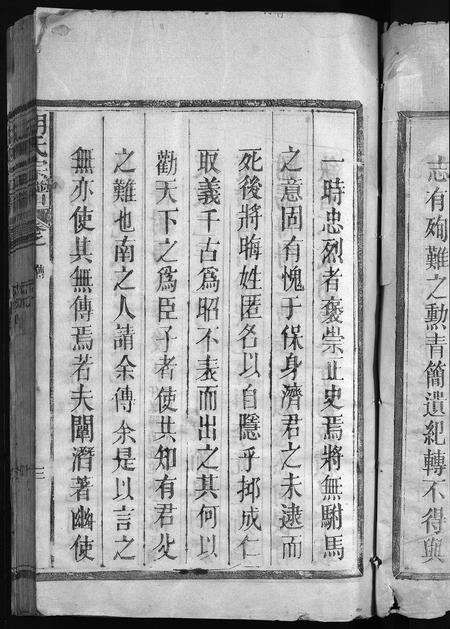 志有殉難之勲青簡遺紀轉不得與
一時忠烈者褒崇正史焉將無駙馬
之意固有愧于保身濟君之未逮而
死後將晦姓匿名以自隱乎抑成仁
取義千古為昭不表而出之其何以
勸天下之為臣子者使其知有君父
之難也南之人請余傳余是以言之
無亦使其無傳焉若夫闡潛著幽使
氏宗譜 卷之 傳 三